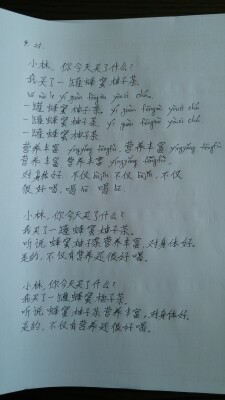 9. 28.
小林，你今天买了什么？
我买了一罐蜂蜜柚子茶。
wǒ mǎi le yí guàn fēngmì yòuzi chá
一罐蜂蜜柚子茶。yí guàn fēngmì yòuzi chá
一罐蜂蜜柚子茶 yí guàn fēngmì yòuzi chá
一罐蜂蜜柚子茶
营养丰富 yíngyǎng fēngfù，营养丰富 yíngyǎng fēngfù
营养丰富 营养丰富 yíngyǎng fēngfù，
对身体好，不仅 bùjǐn，不仅 bùjǐn，不仅
很好喝，喝 喝
小林，你今天买了什么？
我买了一罐蜂蜜柚子茶。
听说 蜂蜜柚子茶营养丰富，对身体好。
是的，不仅有营养还很好喝。
小林，你今天买了什么？
我买了一罐蜂蜜柚子茶。
听说 蜂蜜柚子茶营养丰富，对身体好。
是的，不仅有营养还很好喝。